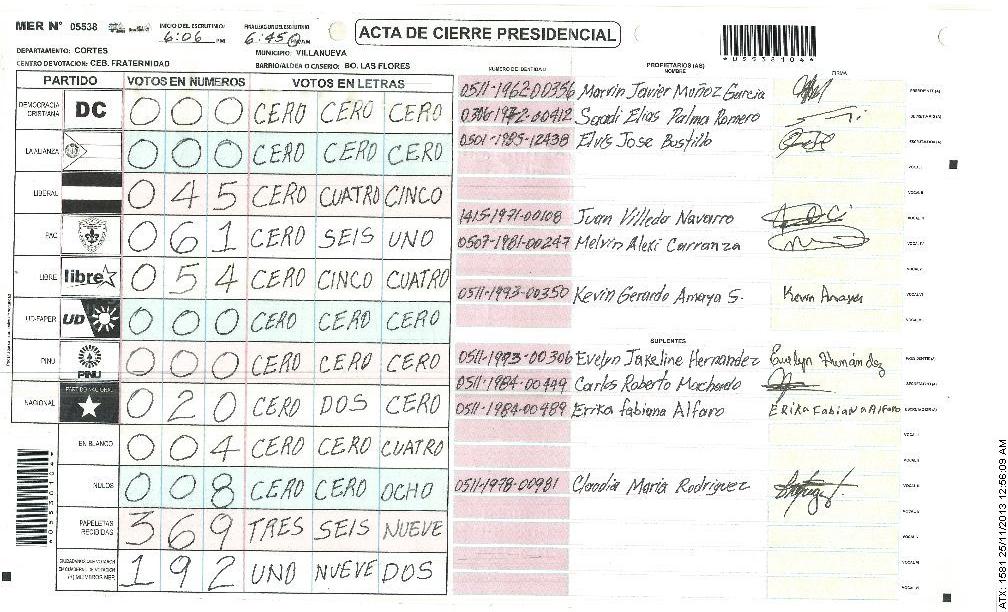 MER N° 05538
INICIO DEL ESCRUTINIO/ 6:06 PM
FINALIZACION DEL ESCRUTINIO 6:45
ACTA DE CIERRE PRESIDENCIAL
DEPARTAMENTO: CORTES
MUNICIPIO: VILLANUEVA
CENTRO DE VOTACION: CEB. FRATERNIDAD
BARRIO/ALDEA O CASERIO: BO. LAS FLORES
*05538104*
PARTIDO VOTOS EN NUMEROS VOTOS EN LETRAS
DEMOCRACIA CRISTIANA DC 0 0 0 CERO CERO CERO
LA ALIANZA 0 0 0 CERO CERO CERO
LIBERAL 0 4 5 CERO CUATRO CINCO
PAC 0 6 1 CERO SEIS UNO
LIBRE libre 0 5 4 CERO CINCO CUATRO
UD-FAPER UD 0 0 0 CERO CERO CERO
PINU PINU 0 0 0 CERO CERO CERO
NACIONAL PARTIDO NACIONAL 0 2 0 CERO DOS CERO
EN BLANCO 0 0 4 CERO CERO CUATRO
NULOS 0 0 8 CERO CERO OCHO
PAPELETAS RECIBIDAS 3 6 9 TRES SEIS NUEVE
1 9 2 UNO NUEVE DOS
NUMERO DE IDENTIDAD PROPIETARIOS (AS) NOMBRE FIRMA
0511-1962-00356 Marvin Javier Muñoz Garcia PRESIDENTE(A)
0306-1972-00412 Saadi Elias Palma Romero SECRETARIO(A)
0501-1985-12438 Elvis Jose Bustillo ESCRUTADOR(A)
1415-1971-00108 Juan Villeda Navarro
0507-1981-00247 Melvin Alexi Carranza
0511-1993-00350 Kevin Gerardo Amaya S. Kevin Amaya
SUPLENTES
0511-1993-00306 Evelyn Jakeline Hernandez Evelyn Hernández PRESIDENTE(A)
0511-1984-00449 Carlos Roberto Machado SECRETARIO(A)
0511-1984-00989 Erika fabiana Alfaro ERiKa FabiaNa AlFaro ESCRUTADOR(A)
0511-1978-00981 Claudia Maria Rodriguez
*05538104*
ATX: 1581 25/11/2013 12:56:09 AM